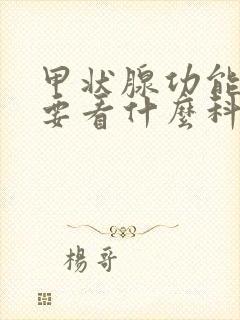 甲状腺功能
要看什麼科
楊哥